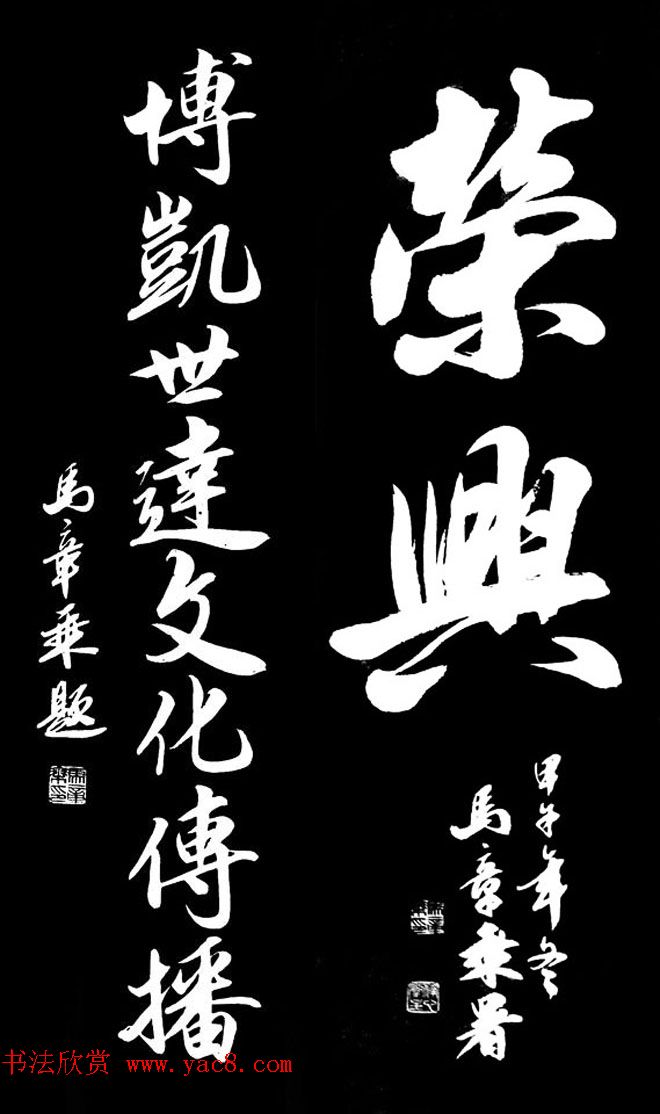 榮興
甲午年冬
馬章乘署
博凱世達文化傳播
馬章乘題
书法欣赏 www.yac8.com